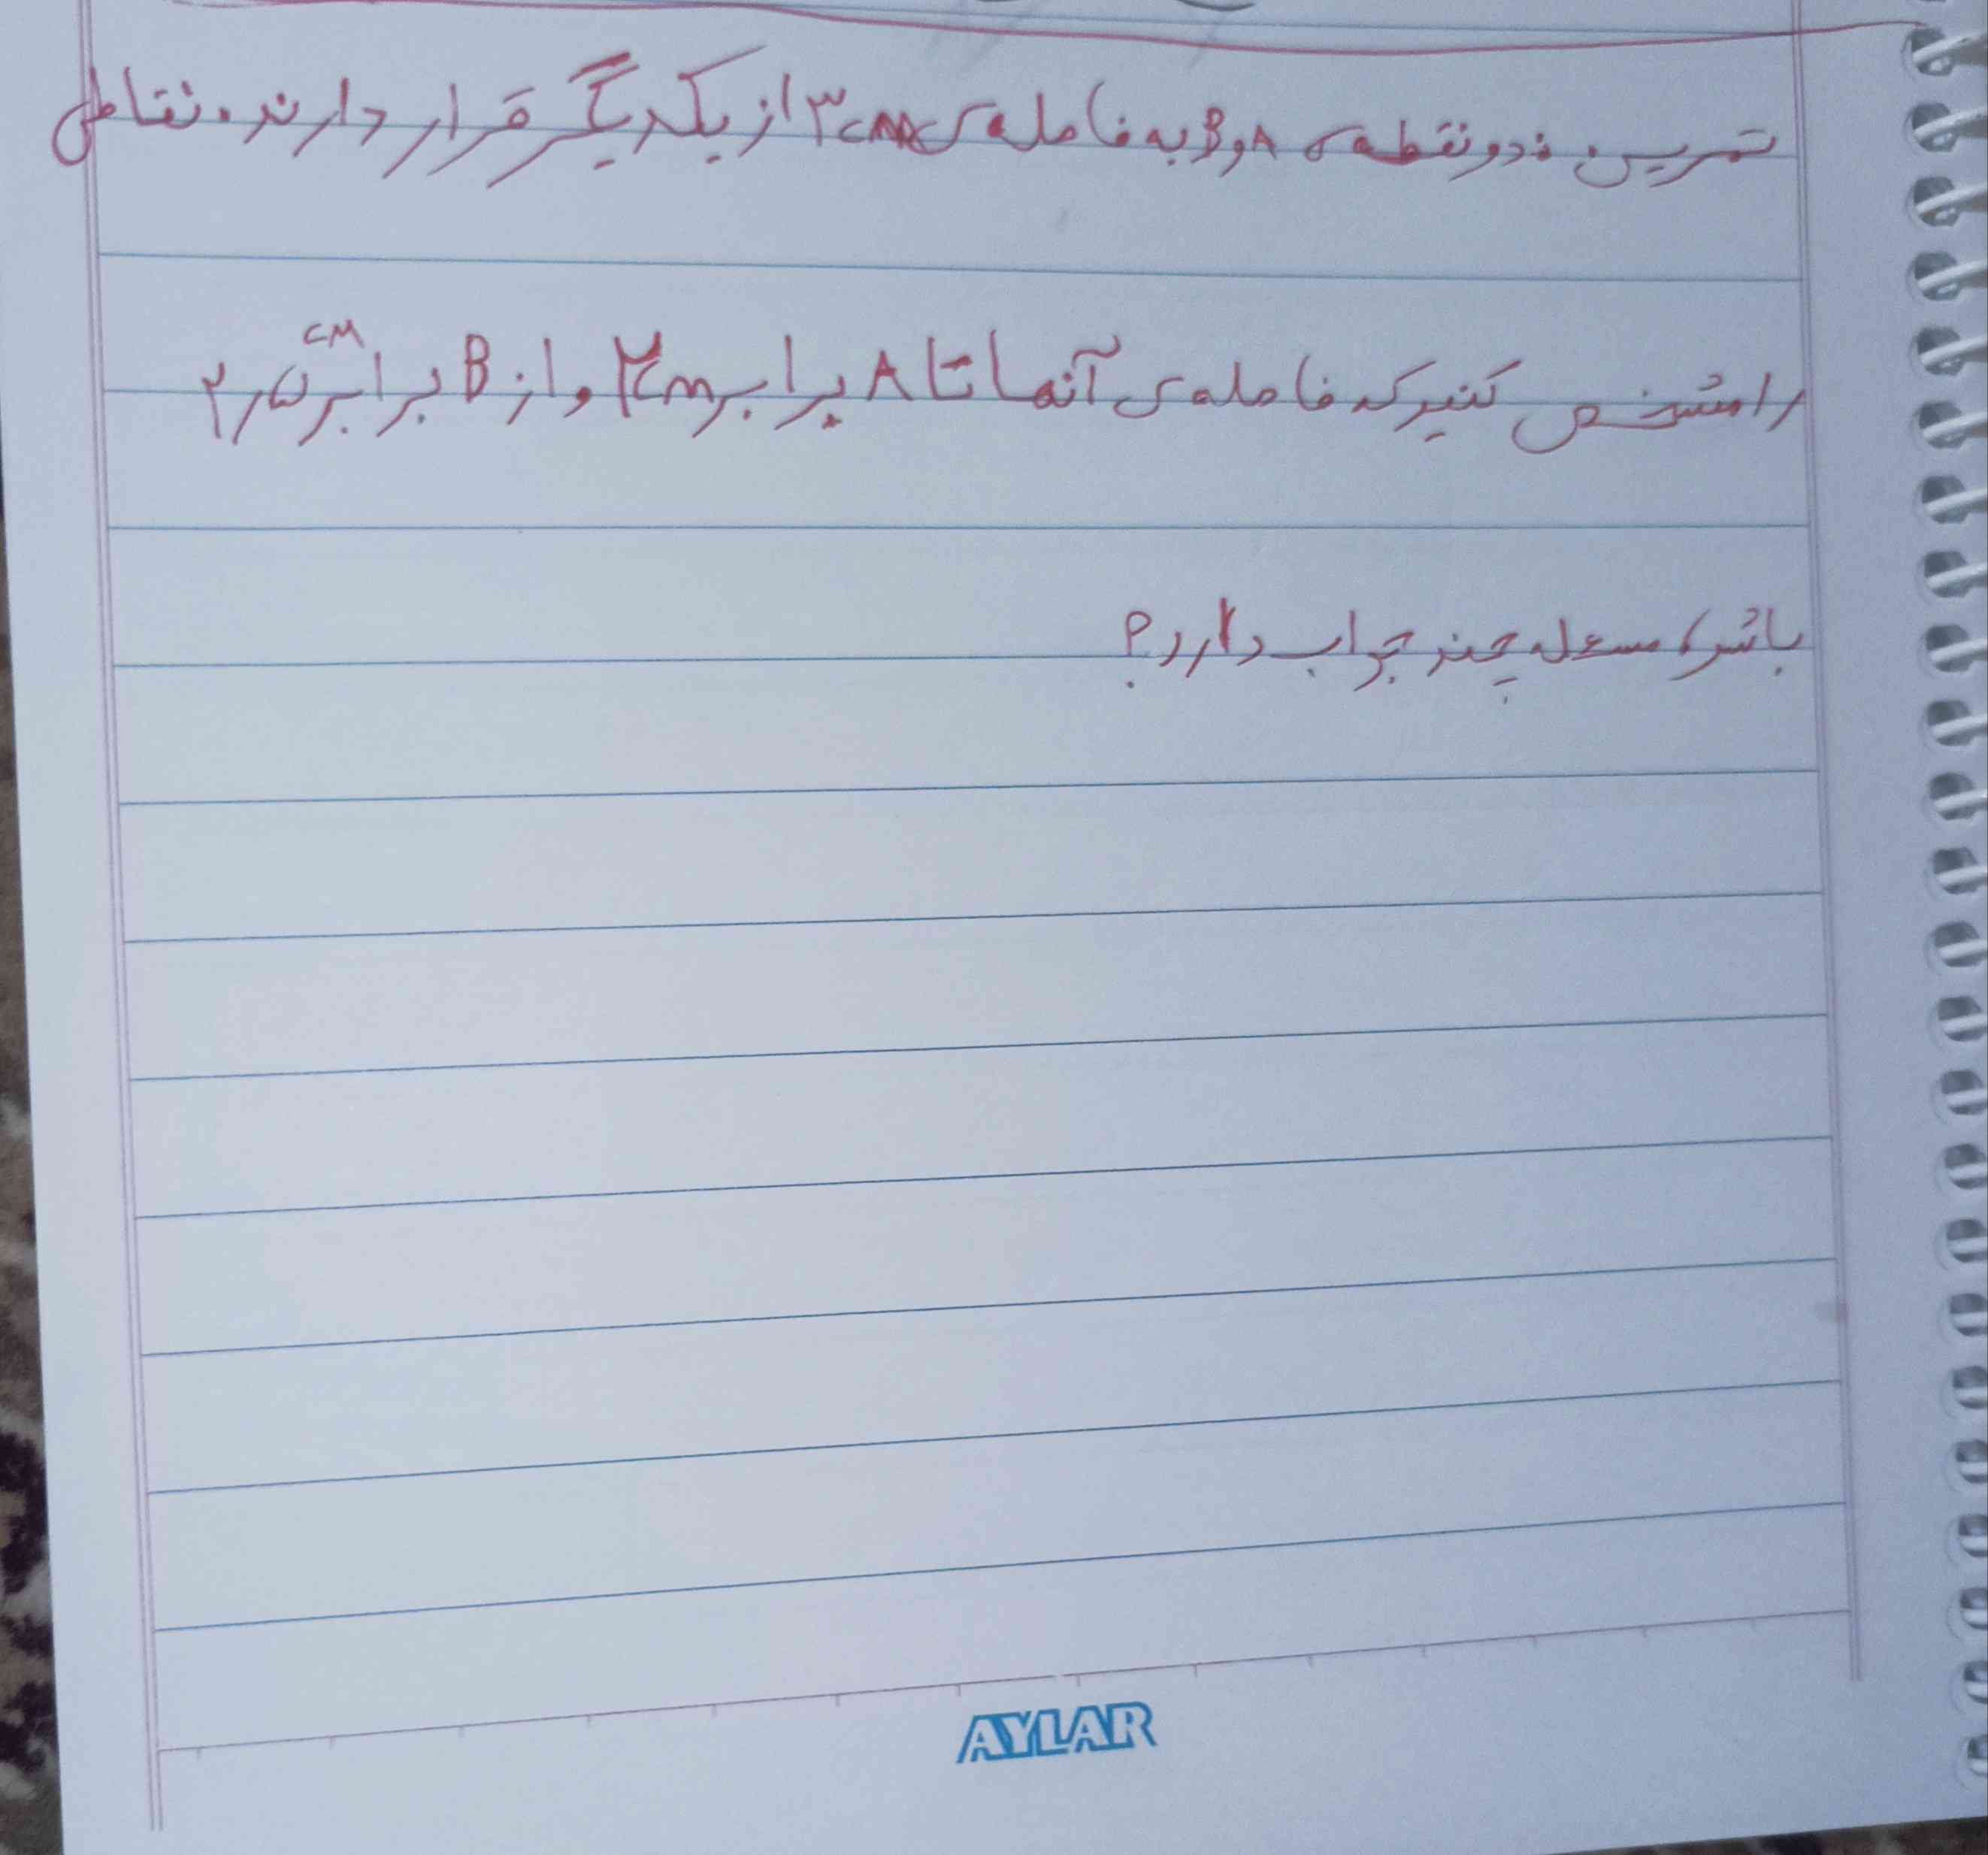 تمرین: دو نقطه ی A و B به فاصله ی ۳cm از یکدیگر قرار دارند. نقاطی
را مشخص کنید که فاصله ی آنها تا A برابر ۲cm و از B برابر ۲٫۵ cm
باشد، مسعله چند جواب دارد؟
AYLAR